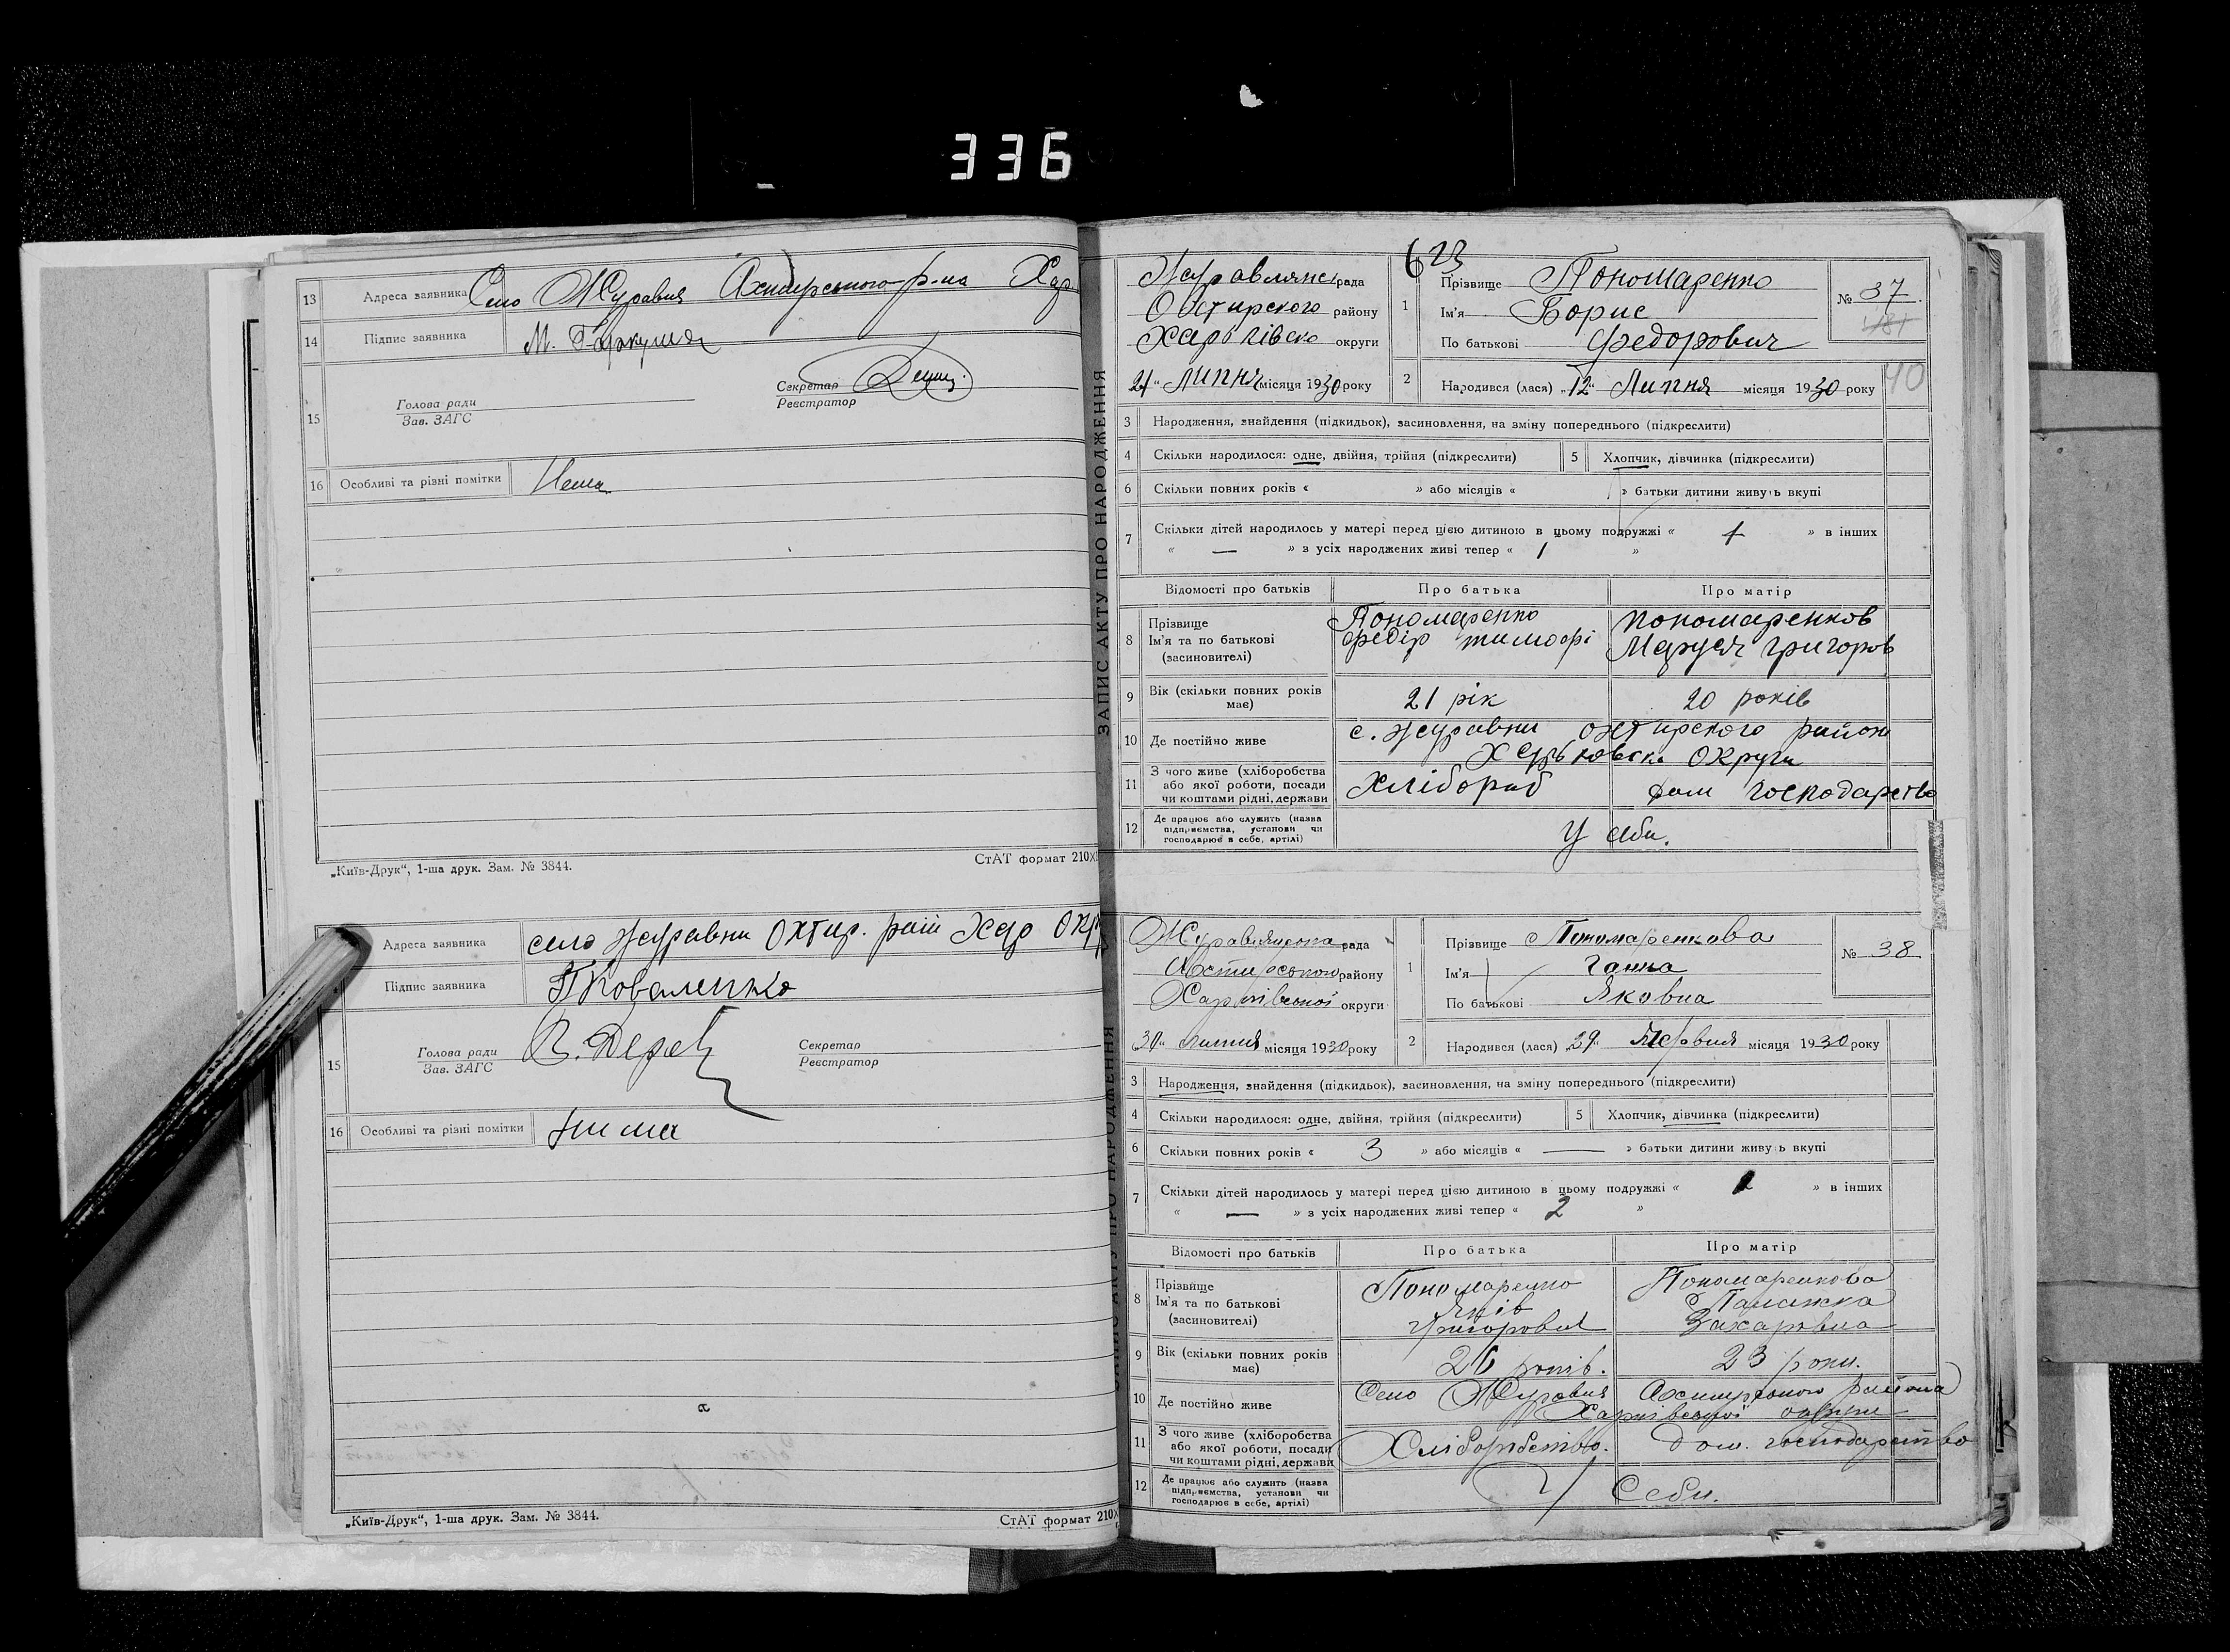 336
13 Адреса заявника Село Журавня Ахтирського р-на Хар
14 Підпис заявника М. Гаркуша
15 Голова ради
Зав. ЗАГС
Секретар
Реєстратор
16 Особливі та різні помітки Нема
„Київ-Друк“, 1-ша друк. Зам. № 3844.
СтАТ формат 210X
Адреса заявника село журавни Охтир. рай Хар Окр
Підпис заявника П Коваленко
15 Голова ради
Зав. ЗАГС
Секретар
Реєстратор
16 Особливі та різні помітки Нима
„Київ-Друк“, 1-ша друк. Зам. № 3844.
СтАТ формат 210X
ЗАПИС АКТУ ПРО НАРОДЖЕННЯ
623
Журавлянс рада
Охтирского району
Харьківско округи
21 „ Липня місяця 1930 року
1 Прізвище Пономаренко
Ім'я Борис
По батькові Федорович
№ 37
2 Народився (лася) „12“ Липня місяця 1930 року
40
3 Народження, знайдення (підкидьок), засиновлення, на зміну попереднього (підкреслити)
4 Скільки народилося: одне, двійня, трійня (підкреслити) 5 Хлопчик, дівчинка (підкреслити)
6 Скільки повних років « » або місяців « » батьки дитини живуть вкупі
7 Скільки дітей народилось у матері перед цією дитиною в цьому подружжі « 1 » в інших
« — » з усіх народжених живі тепер « 1 »
Відомості про батьків Про батька Про матір
8 Прізвище
Ім'я та по батькові
(засиновителі)
Пономаренко
федір тимофі
пономаренков
Маруся григоров
9 Вік (скільки повних років
має)
21 рік 20 років
10 Де постійно живе с. журавни охтирского район
Харьковска округи
11 З чого живе (хліборобства
або якої роботи, посади
чи коштами рідні, держави
Хлібороб дом господарство
12 Де працює або служить (назва
підприємства, установи чи
господарює в себе, артілі)
У себи.
ЗАПИС АКТУ ПРО НАРОДЖЕННЯ
Журавлянська рада
Ахтирського району
Харківської округи
30 „ липня місяця 1930 року
1 Прізвище Пономаренкова
Ім'я Ганна
По батькові Яковна
№ 38
2 Народився (лася) „29“ Червня місяця 1930 року
3 Народження, знайдення (підкидьок), засиновлення, на зміну попереднього (підкреслити)
4 Скільки народилося: одне, двійня, трійня (підкреслити) 5 Хлопчик, дівчинка (підкреслити)
6 Скільки повних років « 3 » або місяців « — » батьки дитини живуть вкупі
7 Скільки дітей народилось у матері перед цією дитиною в цьому подружжі « » в інших
« — » з усіх народжених живі тепер « 2 »
Відомості про батьків Про батька Про матір
8 Прізвище
Ім'я та по батькові
(засиновителі)
Пономаренко
Яків
Григорович
Пономаренкова
Палажка
Захаровна
9 Вік (скільки повних років
має)
26 років. 23 роки.
10 Де постійно живе Село Журавня Ахтирського района
Харківської округи
11 З чого живе (хліборобства
або якої роботи, посади
чи коштами рідні, держави
Хліборобство. Дом. господарство
12 Де працює або служить (назва
підприємства, установи чи
господарює в себе, артілі)
У Себи.